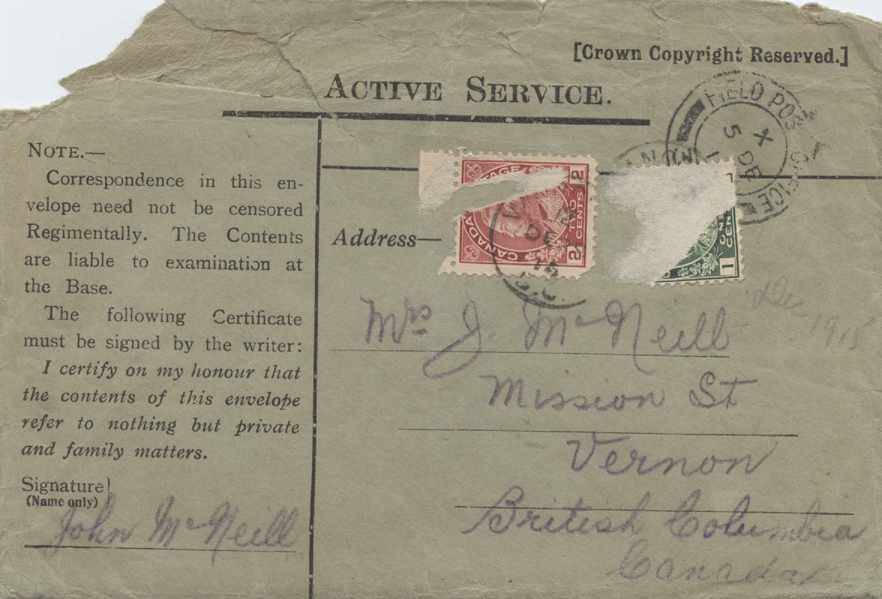 [Crown Copyright Reserved.]
ACTIVE SERVICE.
FIELD POST OFFICE
X
5 DE
NOTE.—
Correspondence in this en-
velope need not be censored
Regimentally. The Contents
are liable to examination at
the Base.
The following Certificate
must be signed by the writer:
I certify on my honour that
the contents of this envelope
refer to nothing but private
and family matters.
Signature
(Name only)
John McNeill
Address—
CANADA POSTAGE
2 TWO CENTS 2
CENT 1
Mrs J. McNeill
Mission St
Vernon
British Columbia
Canada
1915